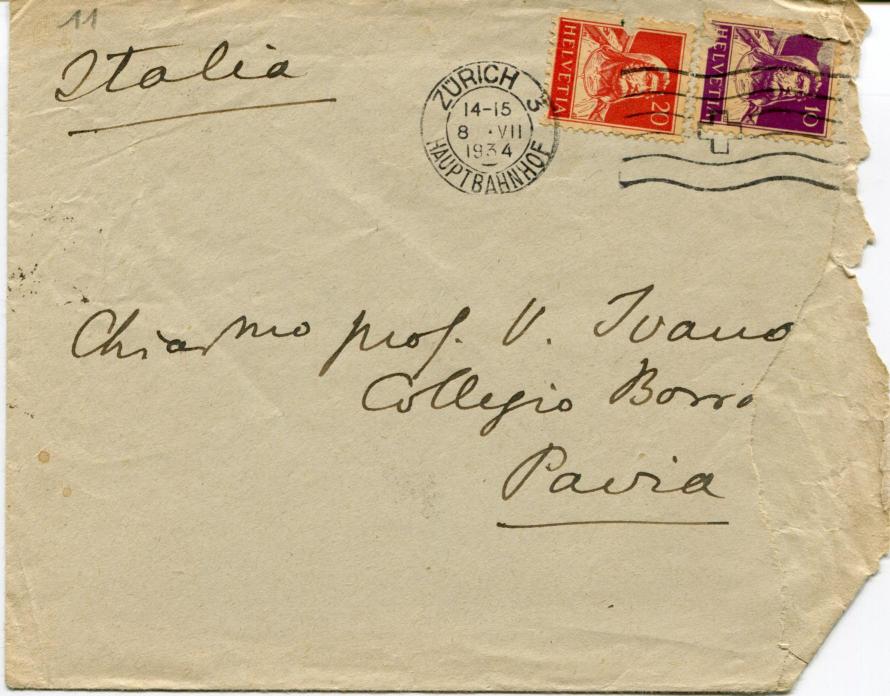 11
Italia
ZÜRICH 3
14-15
8 · VII
1934
HAUPTBAHNHOF
HELVETIA
20
HELVETIA
10
Chiarmo prof. V. Ivano
Collegio Borro
Pavia